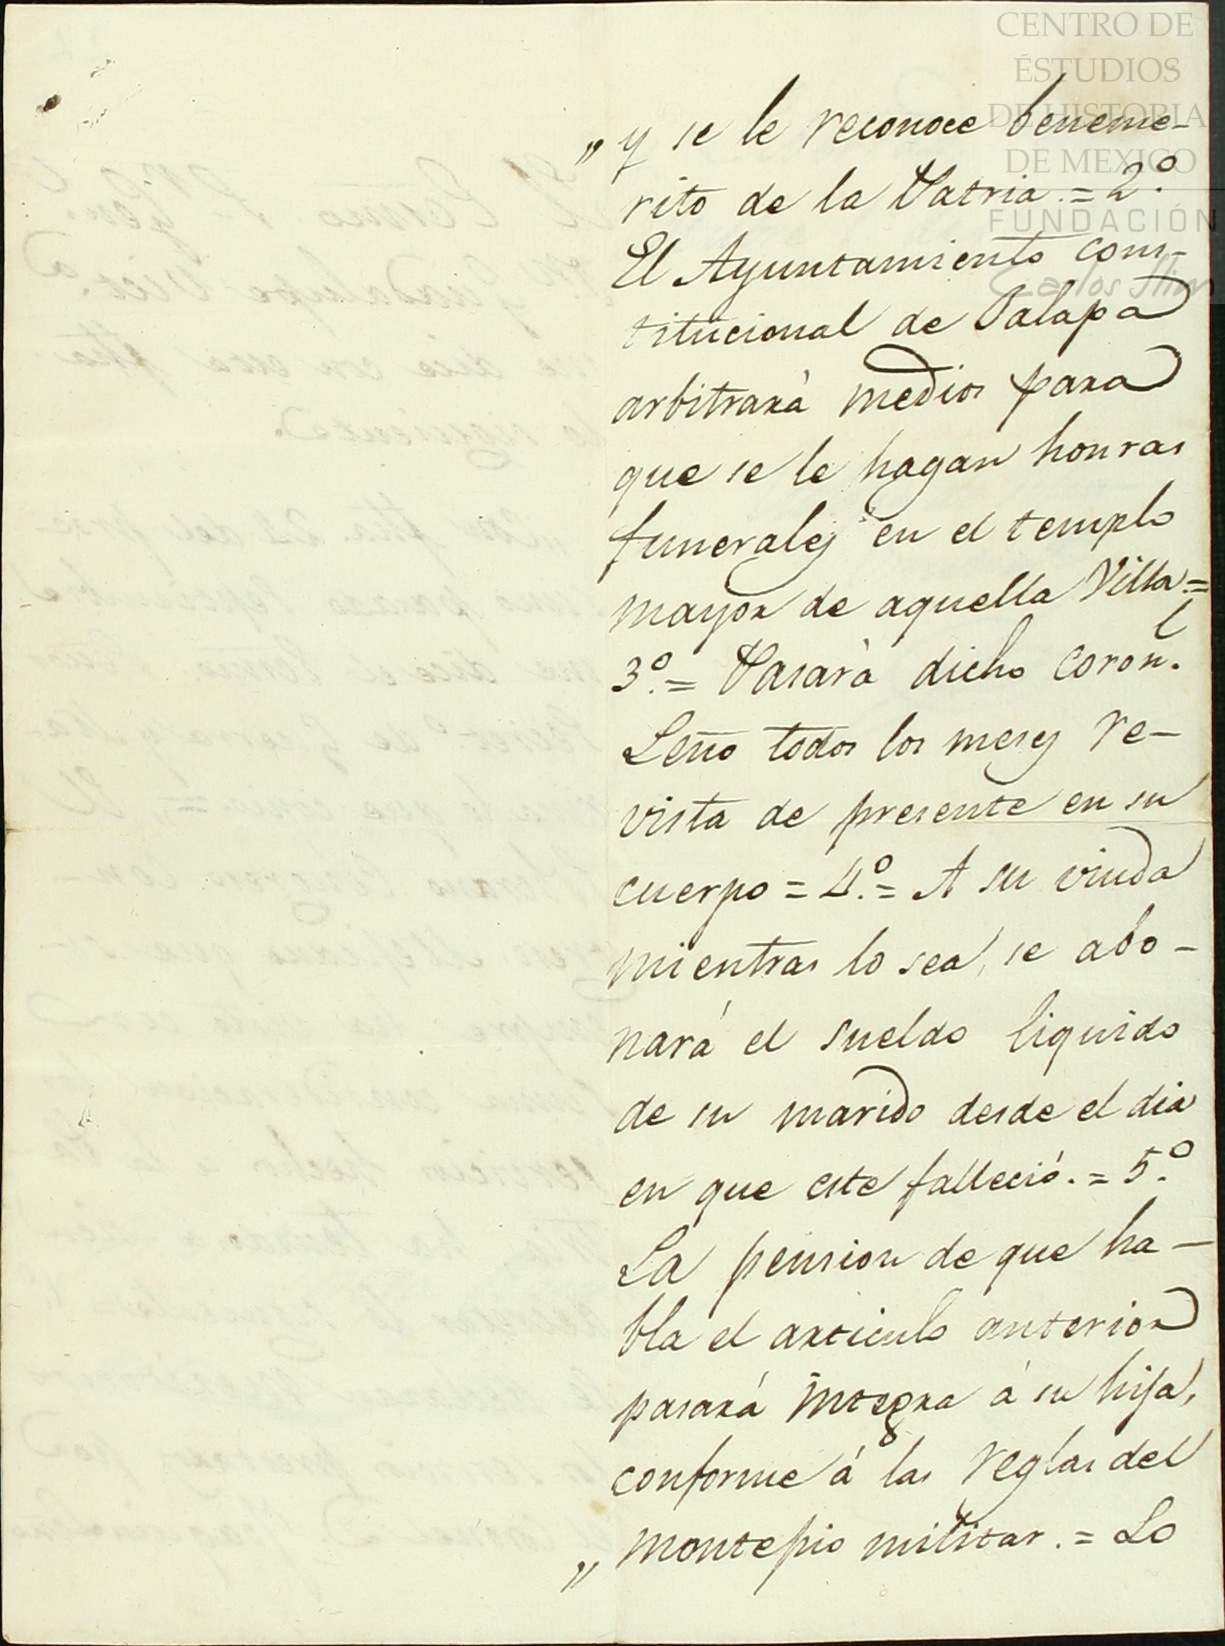 CENTRO DE
ESTUDIOS
DE HISTORIA
DE MEXICO
FUNDACIÓN
Carlos Slim
„ y se le reconoce beneme-
rito de la Patria. = 2.º
El Ayuntamiento cons-
titucional de Jalapa
arbitrará medios para
que se le hagan honras
funerales en el templo
mayor de aquella Villa =
3.º = Pasará dicho Coron.l
Leño todos los meses re-
vista de presente en su
cuerpo = 4.º = A su viuda
mientras lo sea, se abo-
nará el sueldo liquido
de su marido desde el dia
en que este falleció. = 5.º
La pension de que ha-
bla el articulo anterior
pasará integra á su hija,
conforme á las reglas del
„ montepio militar. = Lo